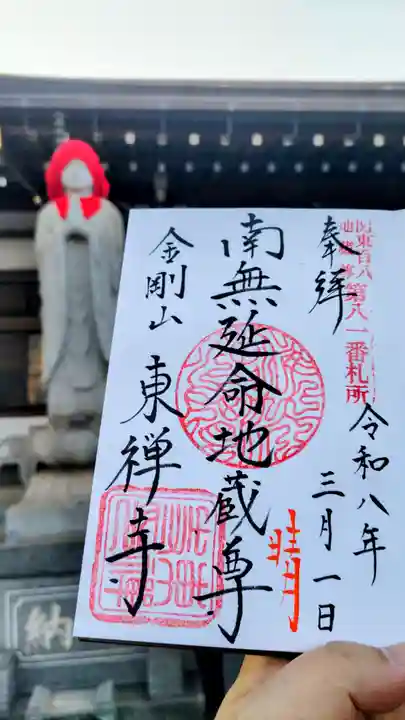 関東百八
地蔵尊
第八一番札所
奉拝
令和八年
三月一日
南無延命地蔵尊
晴
金剛山
東禅寺
納